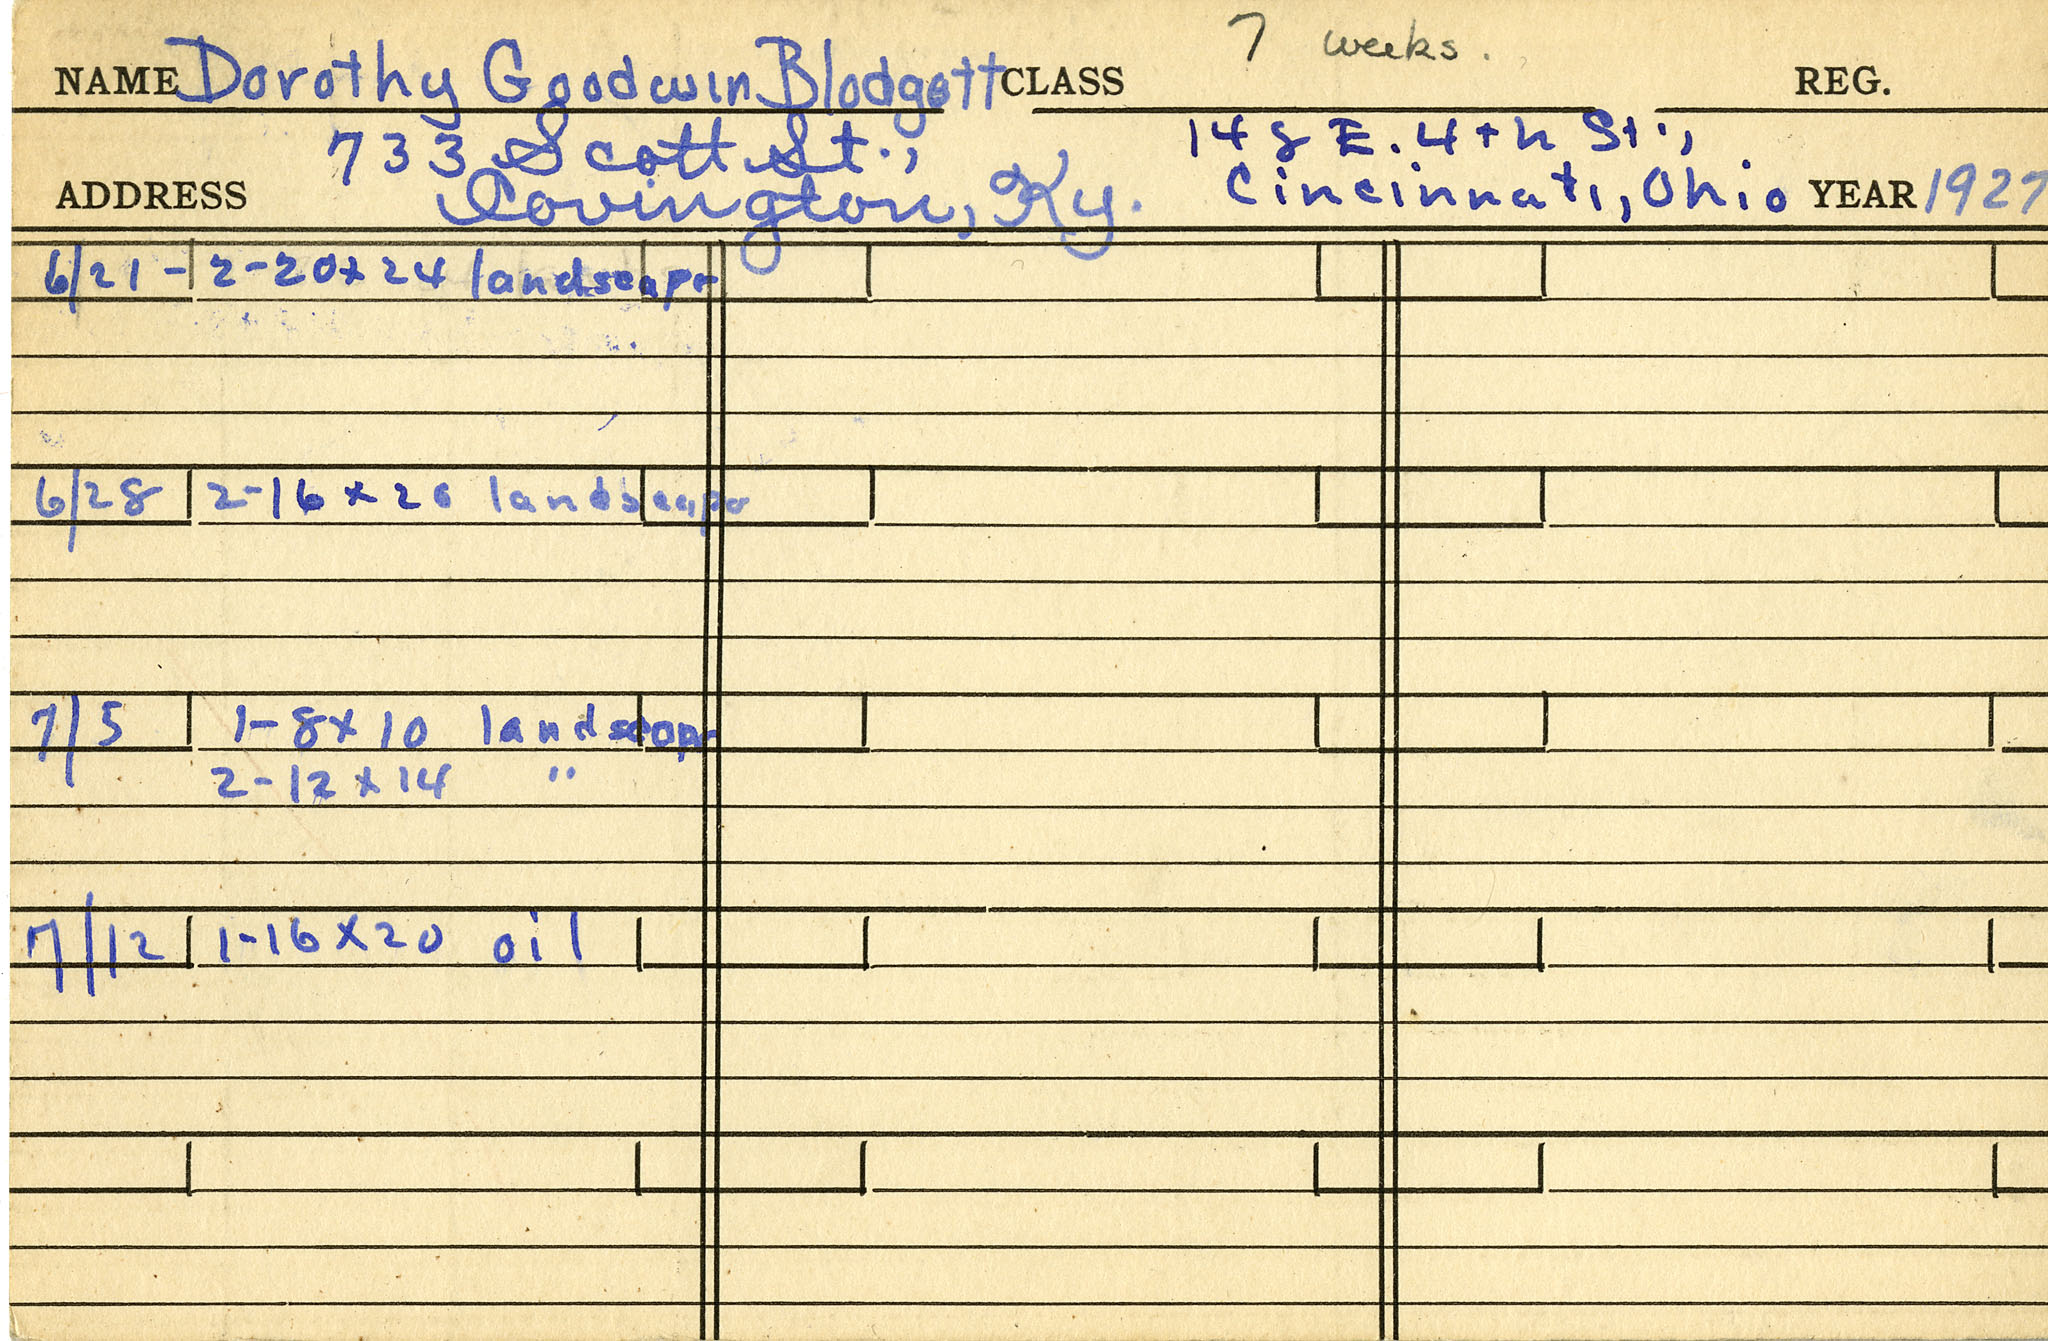 7 weeks.
NAME Dorothy Goodwin Blodgett CLASS REG.
733 Scott St., 148 E. 4th St.,
ADDRESS Covington, Ky. Cincinnati, Ohio YEAR 1927
6/21 - 2-20x24 landscape
6/28 2-16x20 landscape
7/5 1-8x10 landscape
2-12x14 "
7/12 1-16x20 oil